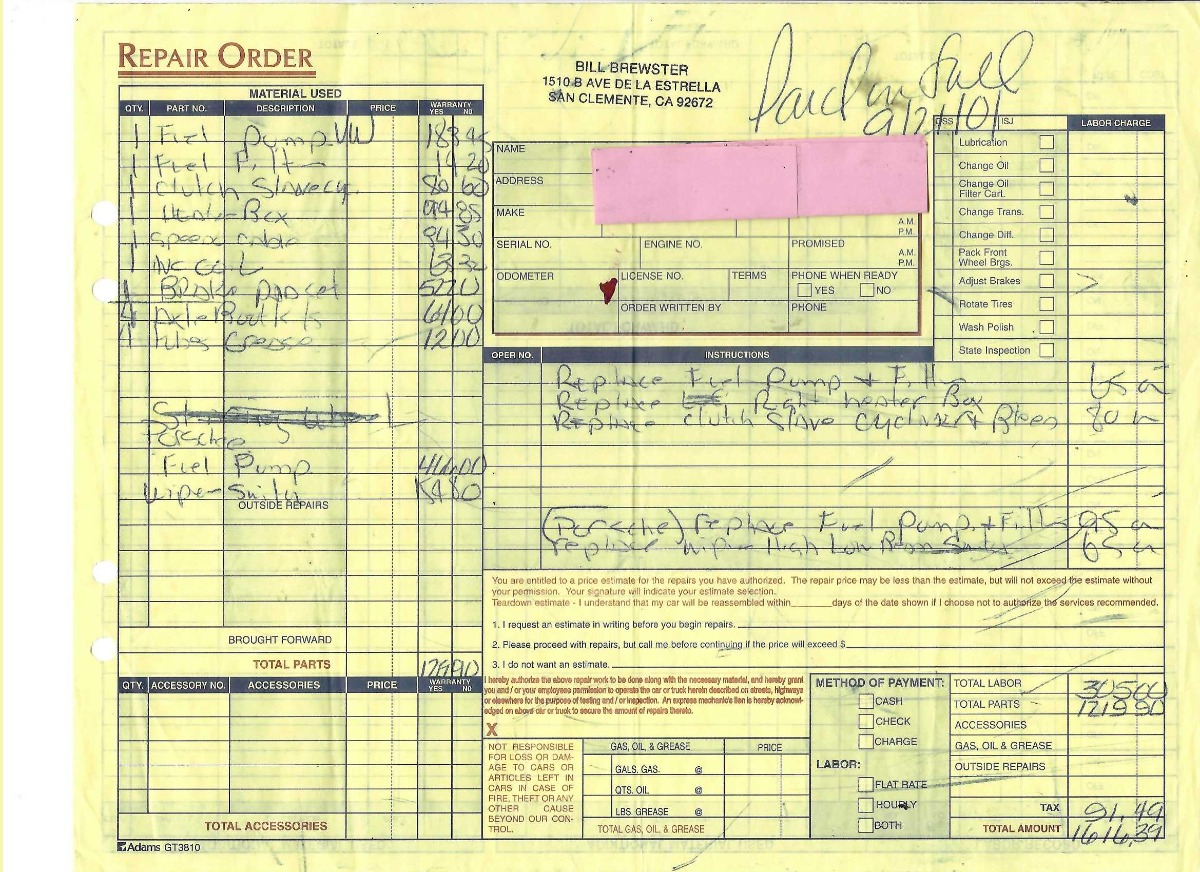 REPAIR ORDER
BILL BREWSTER
1510 B AVE DE LA ESTRELLA
SAN CLEMENTE, CA 92672
Paid in full
MATERIAL USED
QTY. PART NO. DESCRIPTION PRICE WARRANTY YES NO
1 Fuel Pump VW 188 45
1 Fuel Filter 14 20
1 Clutch Slave cyl. 80 60
1 Heater Box 85
1 Speedo cable 30
1 coil
Brake
4 Axle Boot
4 tubes Grease 12 00
Porsche
Fuel Pump
Wiper
OUTSIDE REPAIRS
BROUGHT FORWARD
TOTAL PARTS
QTY. ACCESSORY NO. ACCESSORIES PRICE WARRANTY YES NO
TOTAL ACCESSORIES
Adams GT3810
NAME
ADDRESS
MAKE A.M. P.M.
SERIAL NO. ENGINE NO. PROMISED A.M. P.M.
ODOMETER LICENSE NO. TERMS PHONE WHEN READY
YES NO
ORDER WRITTEN BY PHONE
LABOR CHARGE
Lubrication
Change Oil
Change Oil
Filter Cart.
Change Trans.
Change Diff.
Pack Front
Wheel Brgs.
Adjust Brakes
Rotate Tires
Wash Polish
State Inspection
OPER NO. INSTRUCTIONS
Replace Fuel Pump + Filter 65
Replace Right heater Box
Replace Clutch Slave Cylinder + Bleed 80
(Porsche) replace Fuel Pump + Filter 95
replace Wiper High Low 65
You are entitled to a price estimate for the repairs you have authorized. The repair price may be less than the estimate, but will not exceed the estimate without
your permission. Your signature will indicate your estimate selection.
Teardown estimate - I understand that my car will be reassembled within________days of the date shown if I choose not to authorize the services recommended.
1. I request an estimate in writing before you begin repairs.
2. Please proceed with repairs, but call me before continuing if the price will exceed $
3. I do not want an estimate.
I hereby authorize the above repair work to be done along with the necessary material, and hereby grant
you and / or your employees permission to operate the car or truck herein described on streets, highways
or elsewhere for the purpose of testing and / or inspection. An express mechanic's lien is hereby acknowl-
edged on above car or truck to secure the amount of repairs thereto.
X
NOT RESPONSIBLE
FOR LOSS OR DAM-
AGE TO CARS OR
ARTICLES LEFT IN
CARS IN CASE OF
FIRE, THEFT OR ANY
OTHER CAUSE
BEYOND OUR CON-
TROL.
GAS, OIL & GREASE PRICE
GALS. GAS. @
QTS. OIL @
LBS. GREASE @
TOTAL GAS, OIL & GREASE
METHOD OF PAYMENT:
CASH
CHECK
CHARGE
LABOR:
FLAT RATE
HOURLY
BOTH
TOTAL LABOR 305 00
TOTAL PARTS 1219 90
ACCESSORIES
GAS, OIL & GREASE
OUTSIDE REPAIRS
TAX 91.49
TOTAL AMOUNT 1616.39